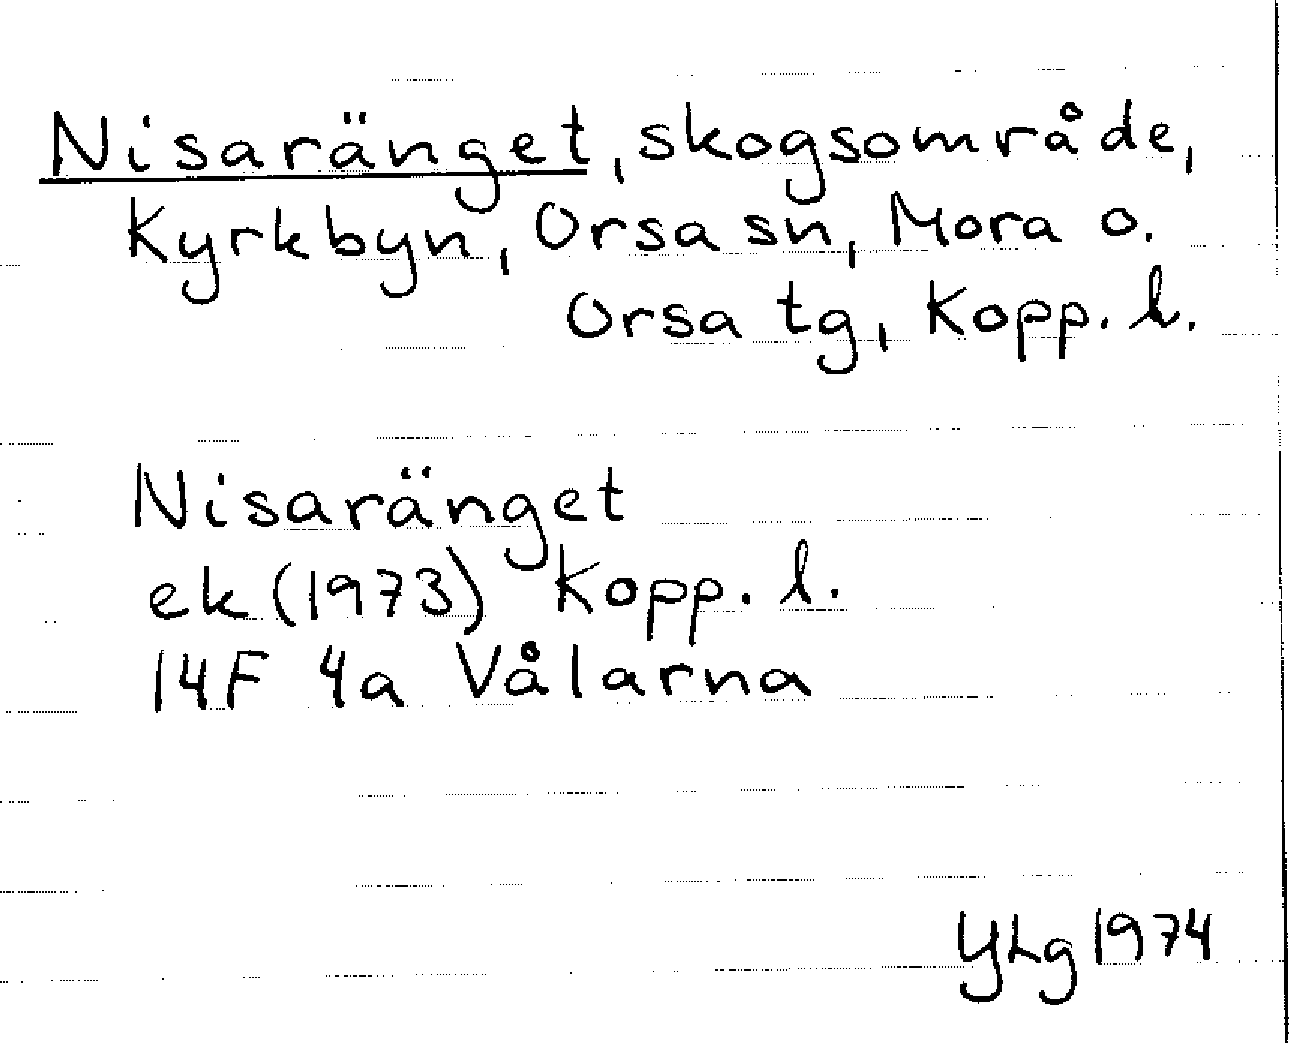 Nisaränget, skogsområde,
Kyrkbyn, Orsa sn, Mora o.
Orsa tg, Kopp. l.
Nisaränget
ek (1973) Kopp. l.
14F 4a Vålarna
YLg 1974